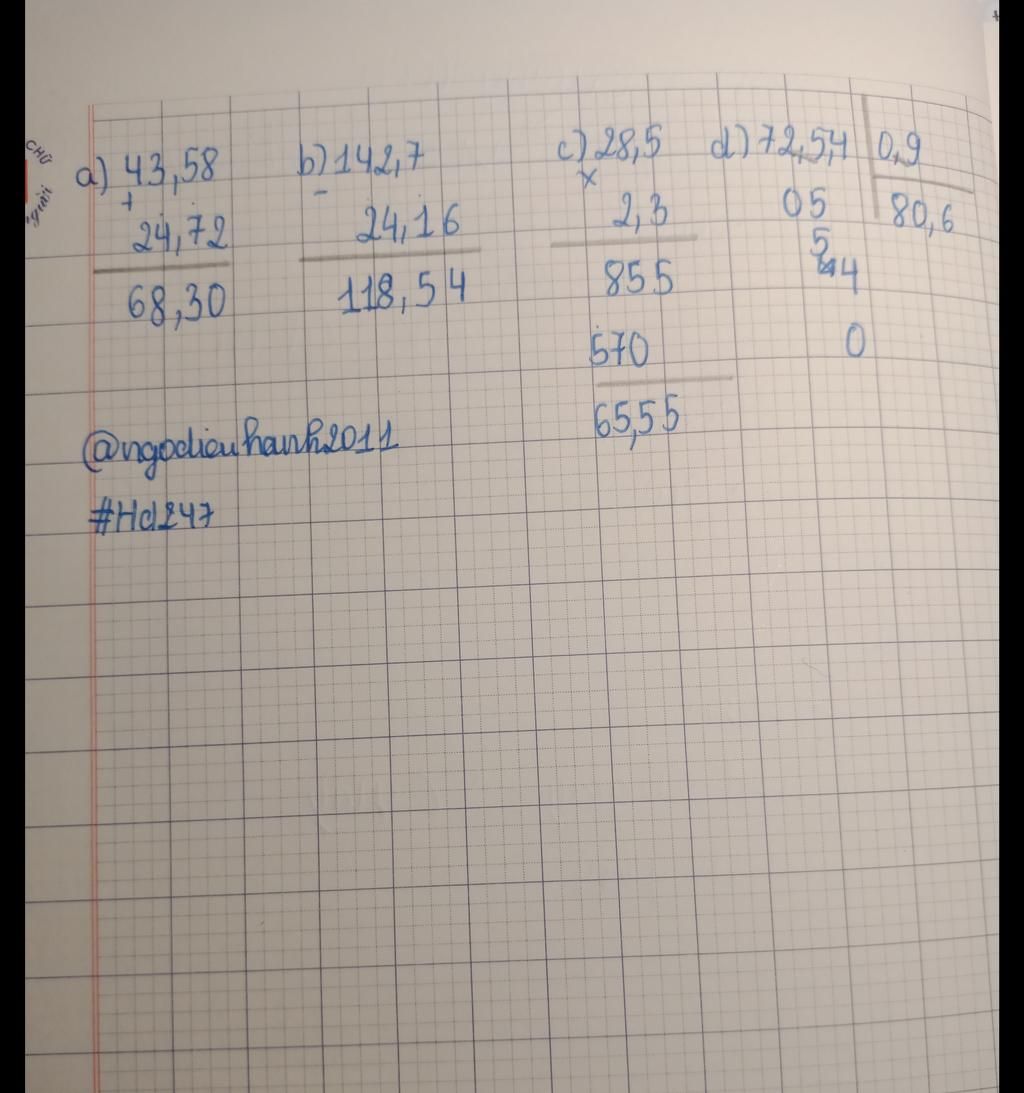 CHỮ
giải
a) 43,58 b) 142,7 c) 28,5 d) 72,5,4 0,9
+ - x
24,72 24,16 2,3 05 80,6
68,30 118,54 855 54
570 0
65,55
@ngodieuhanh2011
#Hd247